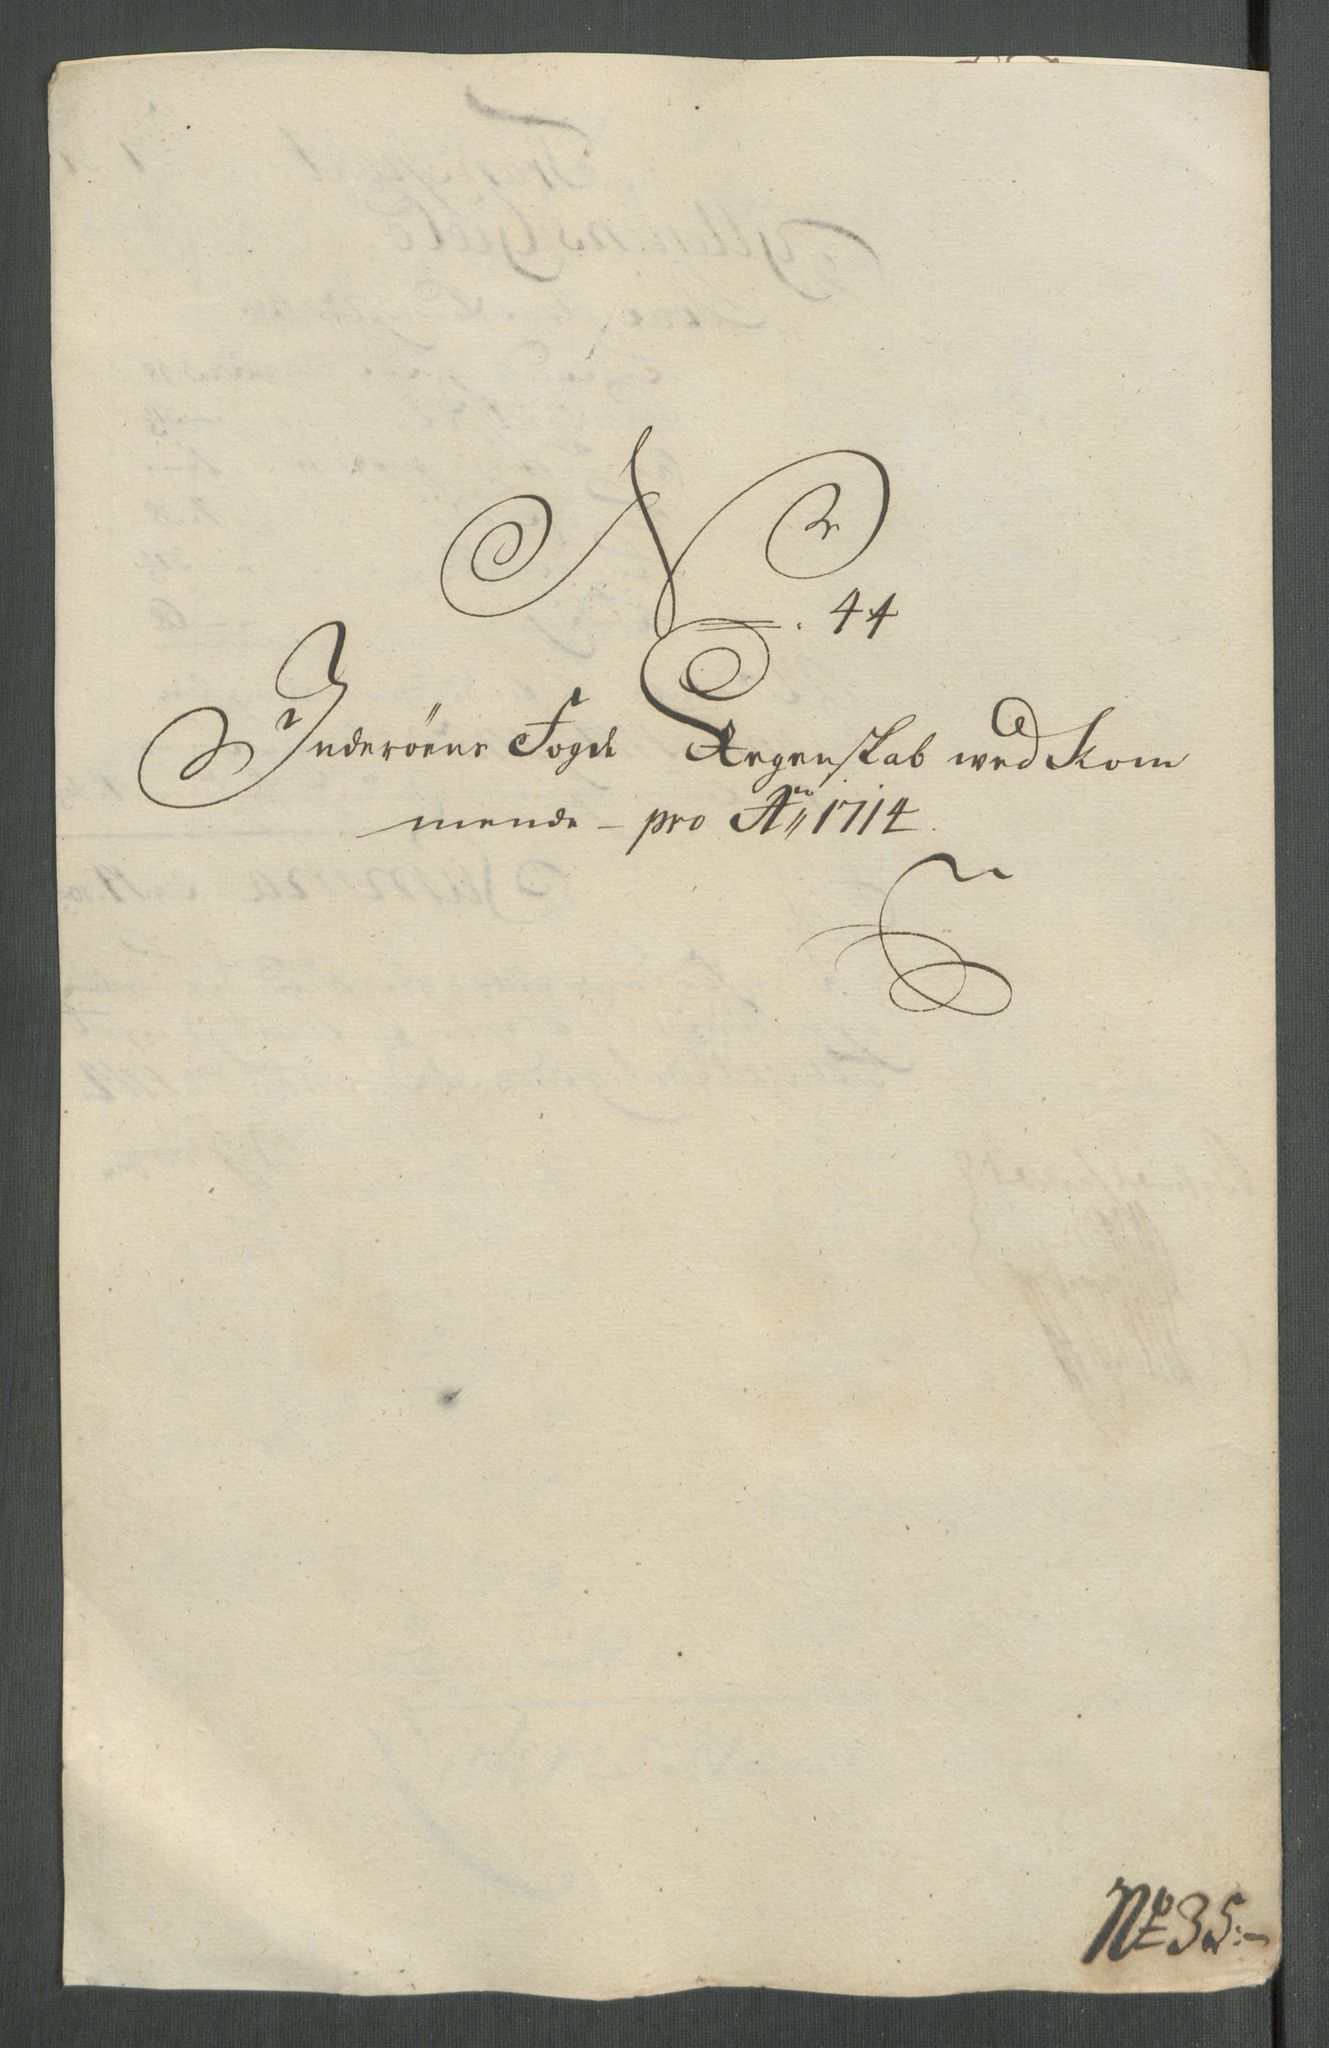 N. 44
Inderöens Fogd Regenskab wed Kom
mende - pro Ao 1714
No 35: